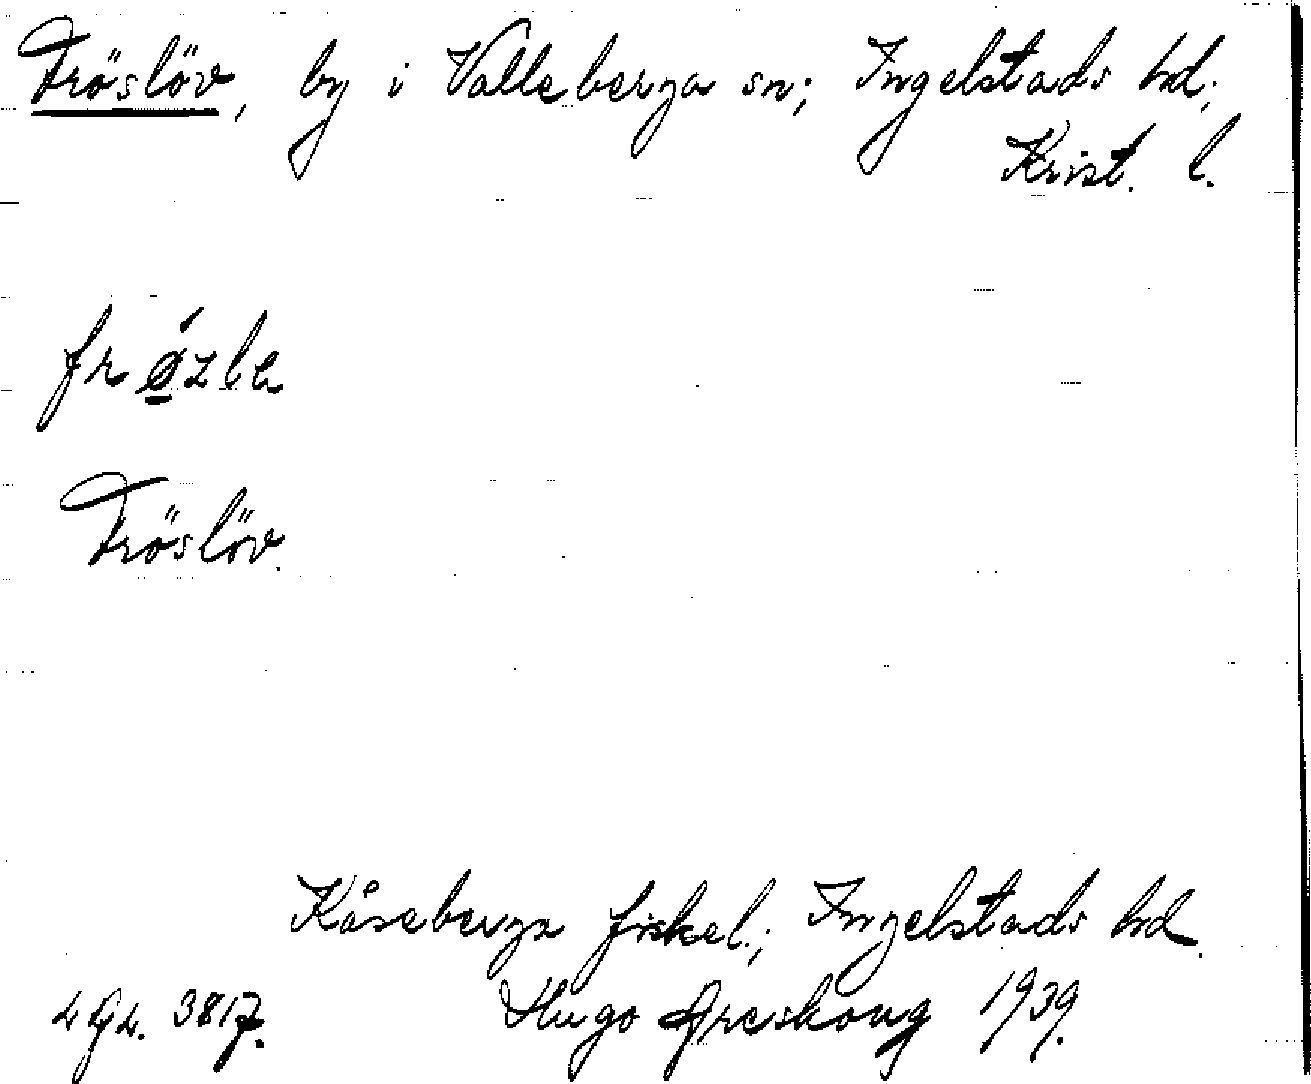 Fröslöv, by i Valleberga sn; Ingelstads hd;
Krist. l.
Fröslöv.
Kåseberga fiskel.; Ingelstads hd.
Hugo Areskoug 1939.
3817.